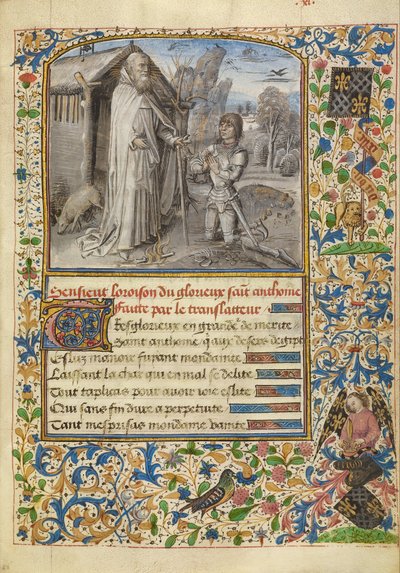 .xi.
Sensieut loroison du glorieux saīt anthoīne
Faitte par le translatteur
Tresglorieux en grande de merite
Saint anthoīne q̄ aux desers degipt
Esluz manoir fuyant mondanite
Laissant la char qui en mal se delite
Tout taplicas pour auoir voie eslite
Qui sans fin dure a perpetuite
Tant mesprisas mondaīne vanite